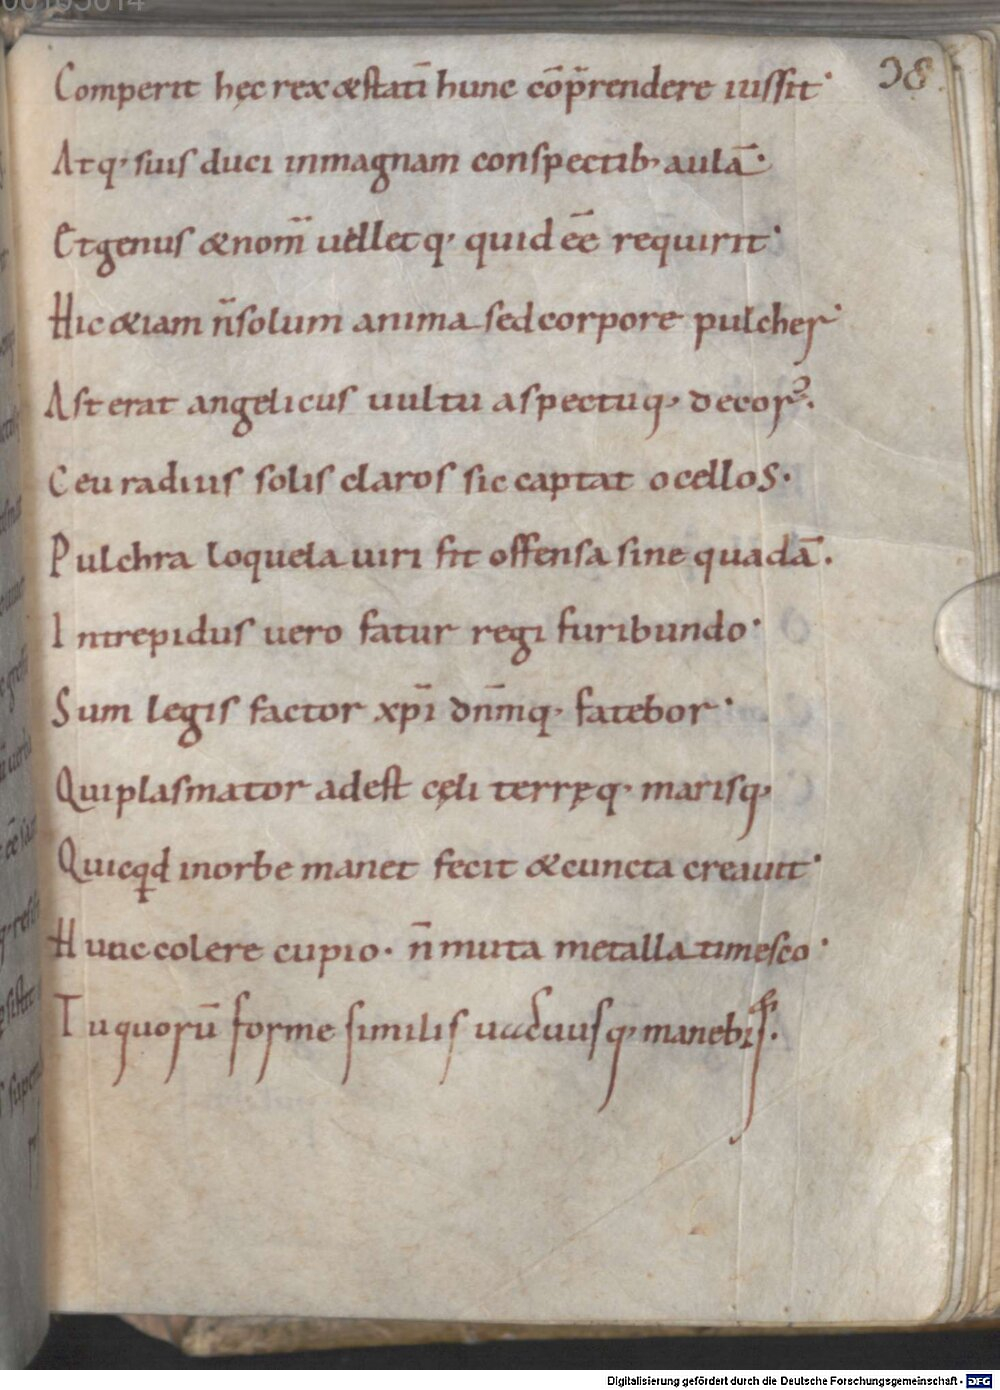 00105014
38
Comperit hęc rex &statī hunc cōp̄rendere iussit·
Atq· suis duci inmagnam conspectib· aulā·
Et genus &nom̄ uellet q· quid eē requirit·
Hic &iam n̄ solum anima sed corpore pulcher·
Ast erat angelicus uultu aspectuq· decor·
Ceu radius solis claros sic captat ocellos·
Pulchra loquela uiri fit offensa sine quadā.
Intrepidus uero fatur regi furibundo·
Sum legis factor xp̄i dn̄mq· fatebor·
Qui plasmator adest cęli terręq· marisq·
Quicqd inorbe manet fecit &cuncta creauit·
Hunc colere cupio· n̄ muta metalla timesco·
Tu quorū forme similis manebis.
Digitalisierung gefördert durch die Deutsche Forschungsgemeinschaft - DFG